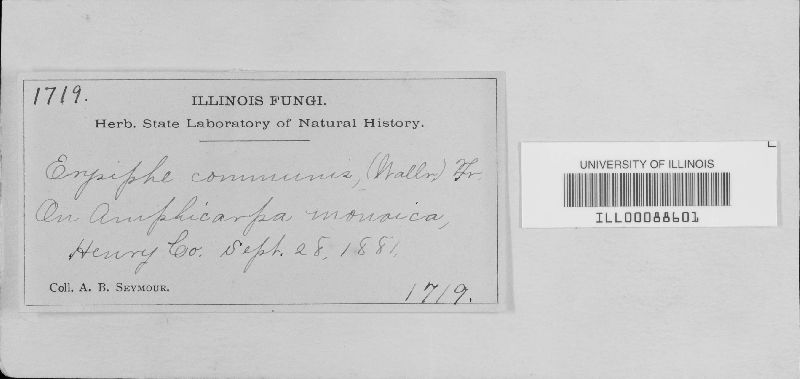 1719.
ILLINOIS FUNGI.
Herb. State Laboratory of Natural History.
Erysiphe communis, (Wallr.) Fr.
On Amphicarpa monoica,
Henry Co. Sept. 28, 1881.
Coll. A. B. Seymour.
1719.
UNIVERSITY OF ILLINOIS
ILL00088601